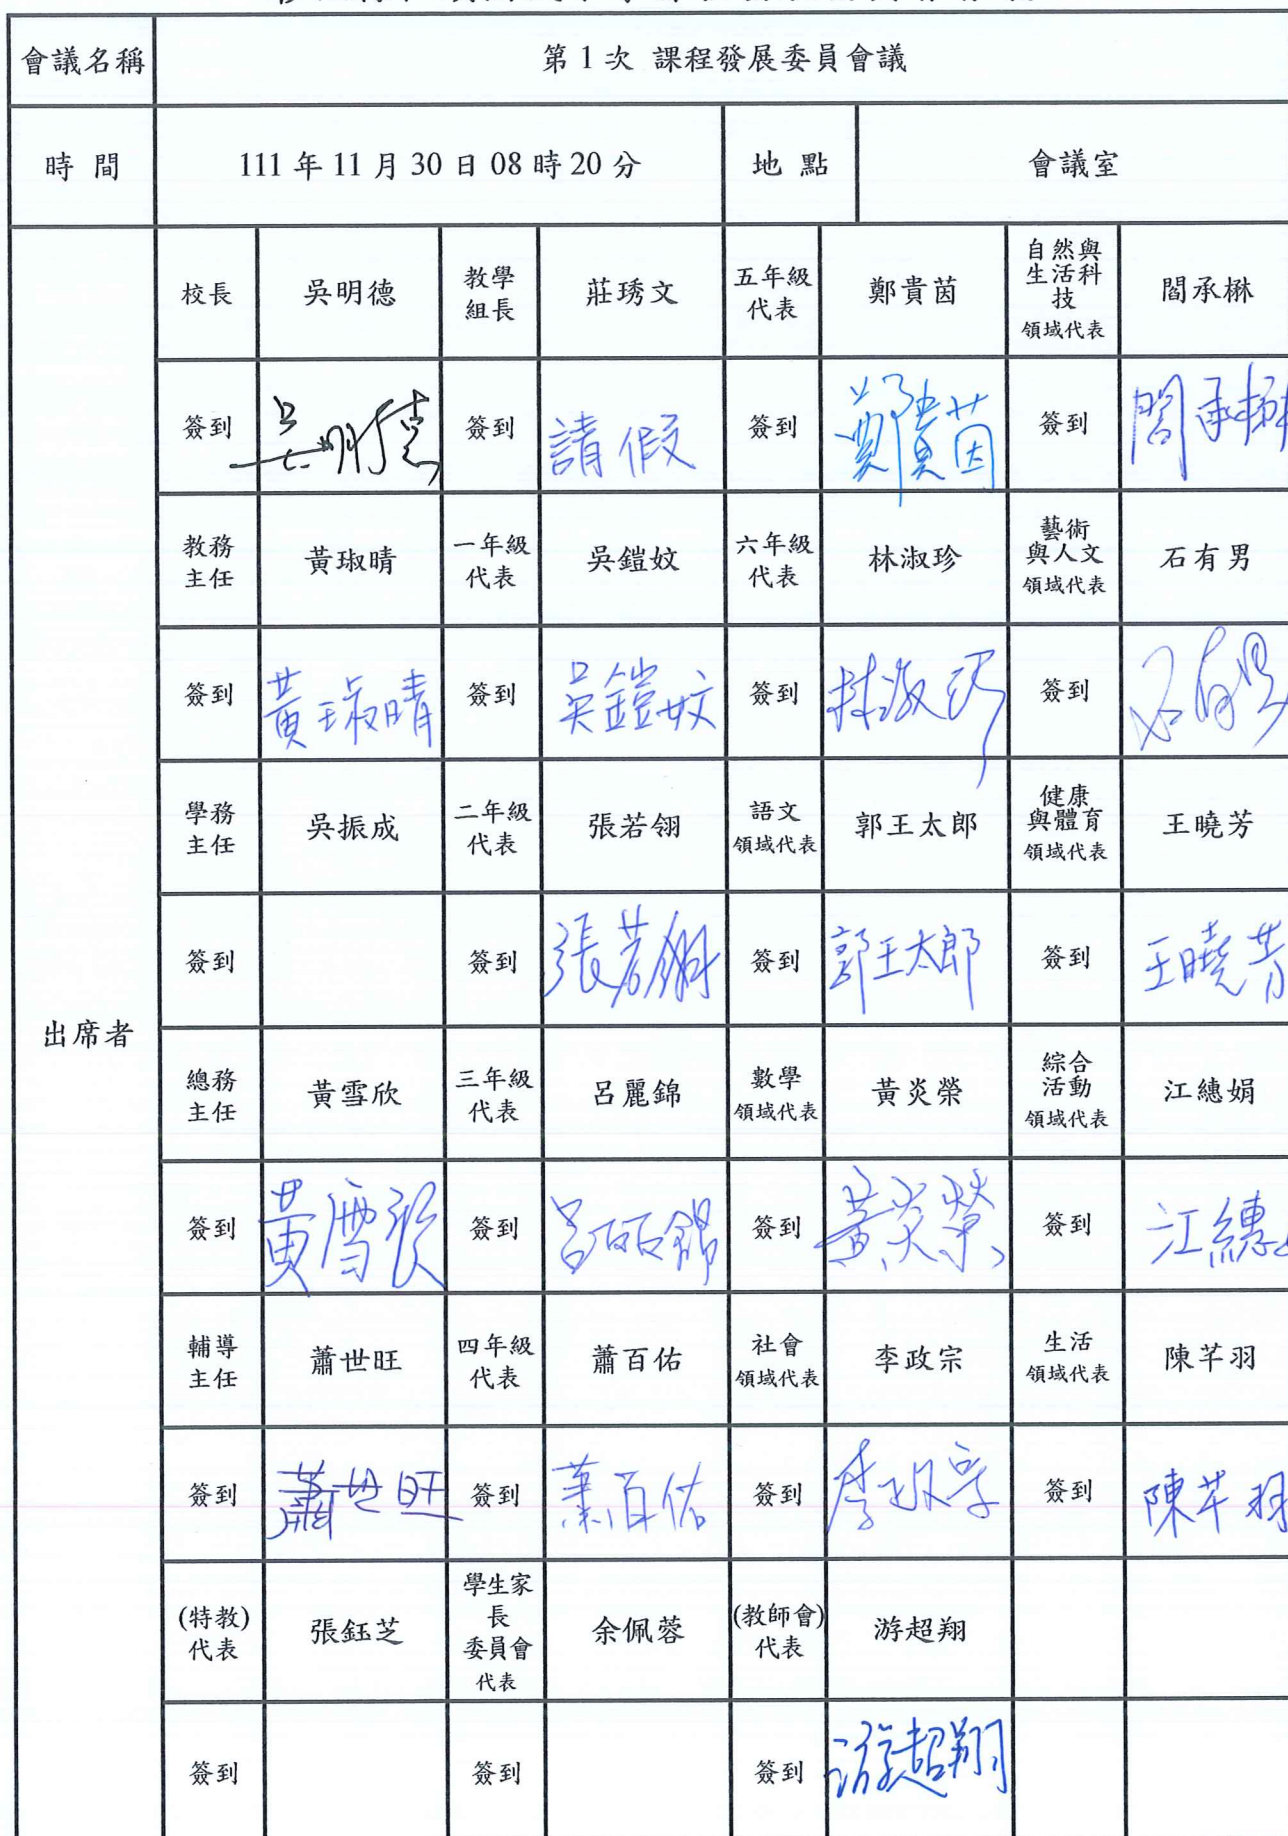 會議名稱 第1次 課程發展委員會議
時 間 111年11月30日08時20分 地 點 會議室
出席者
校長 吳明德 教學組長 莊琇文 五年級代表 鄭貴茵 自然與生活科技領域代表 閻承楙
簽到 吳明德 簽到 請假 簽到 鄭貴茵 簽到 閻承楙
教務主任 黃琡晴 一年級代表 吳鎧妏 六年級代表 林淑珍 藝術與人文領域代表 石有男
簽到 黃琡晴 簽到 吳鎧妏 簽到 林淑珍 簽到 石有男
學務主任 吳振成 二年級代表 張若翎 語文領域代表 郭王太郎 健康與體育領域代表 王曉芳
簽到 簽到 張若翎 簽到 郭王太郎 簽到 王曉芳
總務主任 黃雪欣 三年級代表 呂麗錦 數學領域代表 黃炎榮 綜合活動領域代表 江繐娟
簽到 黃雪欣 簽到 呂麗錦 簽到 黃炎榮 簽到 江繐
輔導主任 蕭世旺 四年級代表 蕭百佑 社會領域代表 李政宗 生活領域代表 陳芊羽
簽到 蕭世旺 簽到 蕭百佑 簽到 李政宗 簽到 陳芊羽
(特教)代表 張鈺芝 學生家長委員會代表 余佩蓉 (教師會)代表 游超翔
簽到 簽到 簽到 游超翔